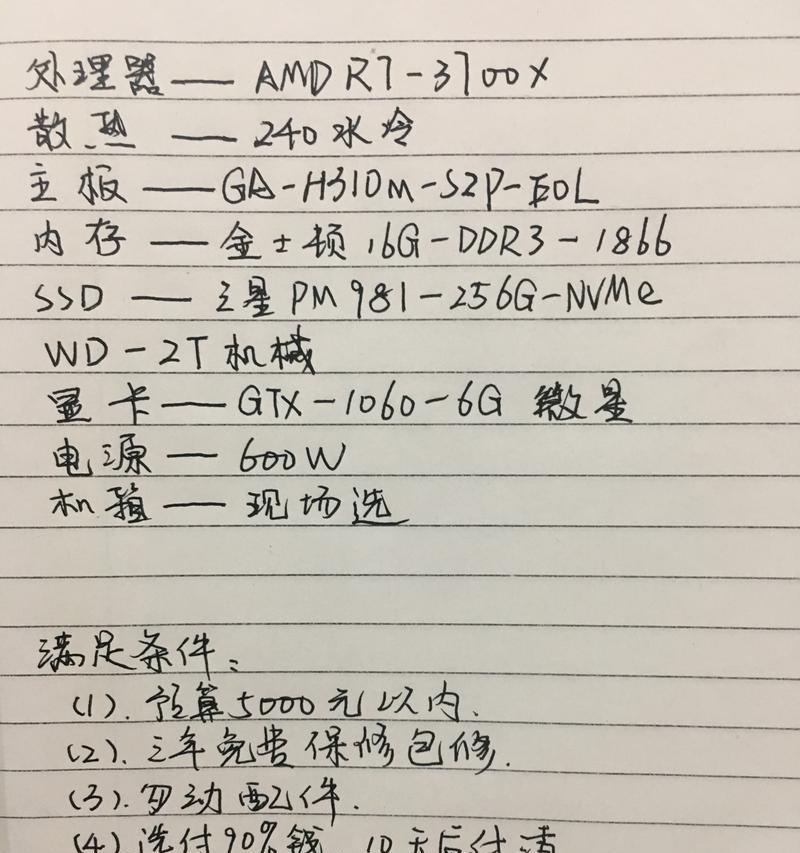 处理器 —— AMD R7-3700X
散热 —— 240水冷
主板 —— GA-H310m-S2P-EOL
内存 —— 金士顿16G-DDR3-1866
SSD —— 三星PM981-256G-NVMe
WD-2T机械
显卡 —— GTX-1060-6G 微星
电源 —— 600W
机箱 —— 现场选
满足条件:
(1). 预算5000元以内.
(2). 三年免费保修包修.
(3). 罗动配件.
(4) 先付90%钱 10天后付清